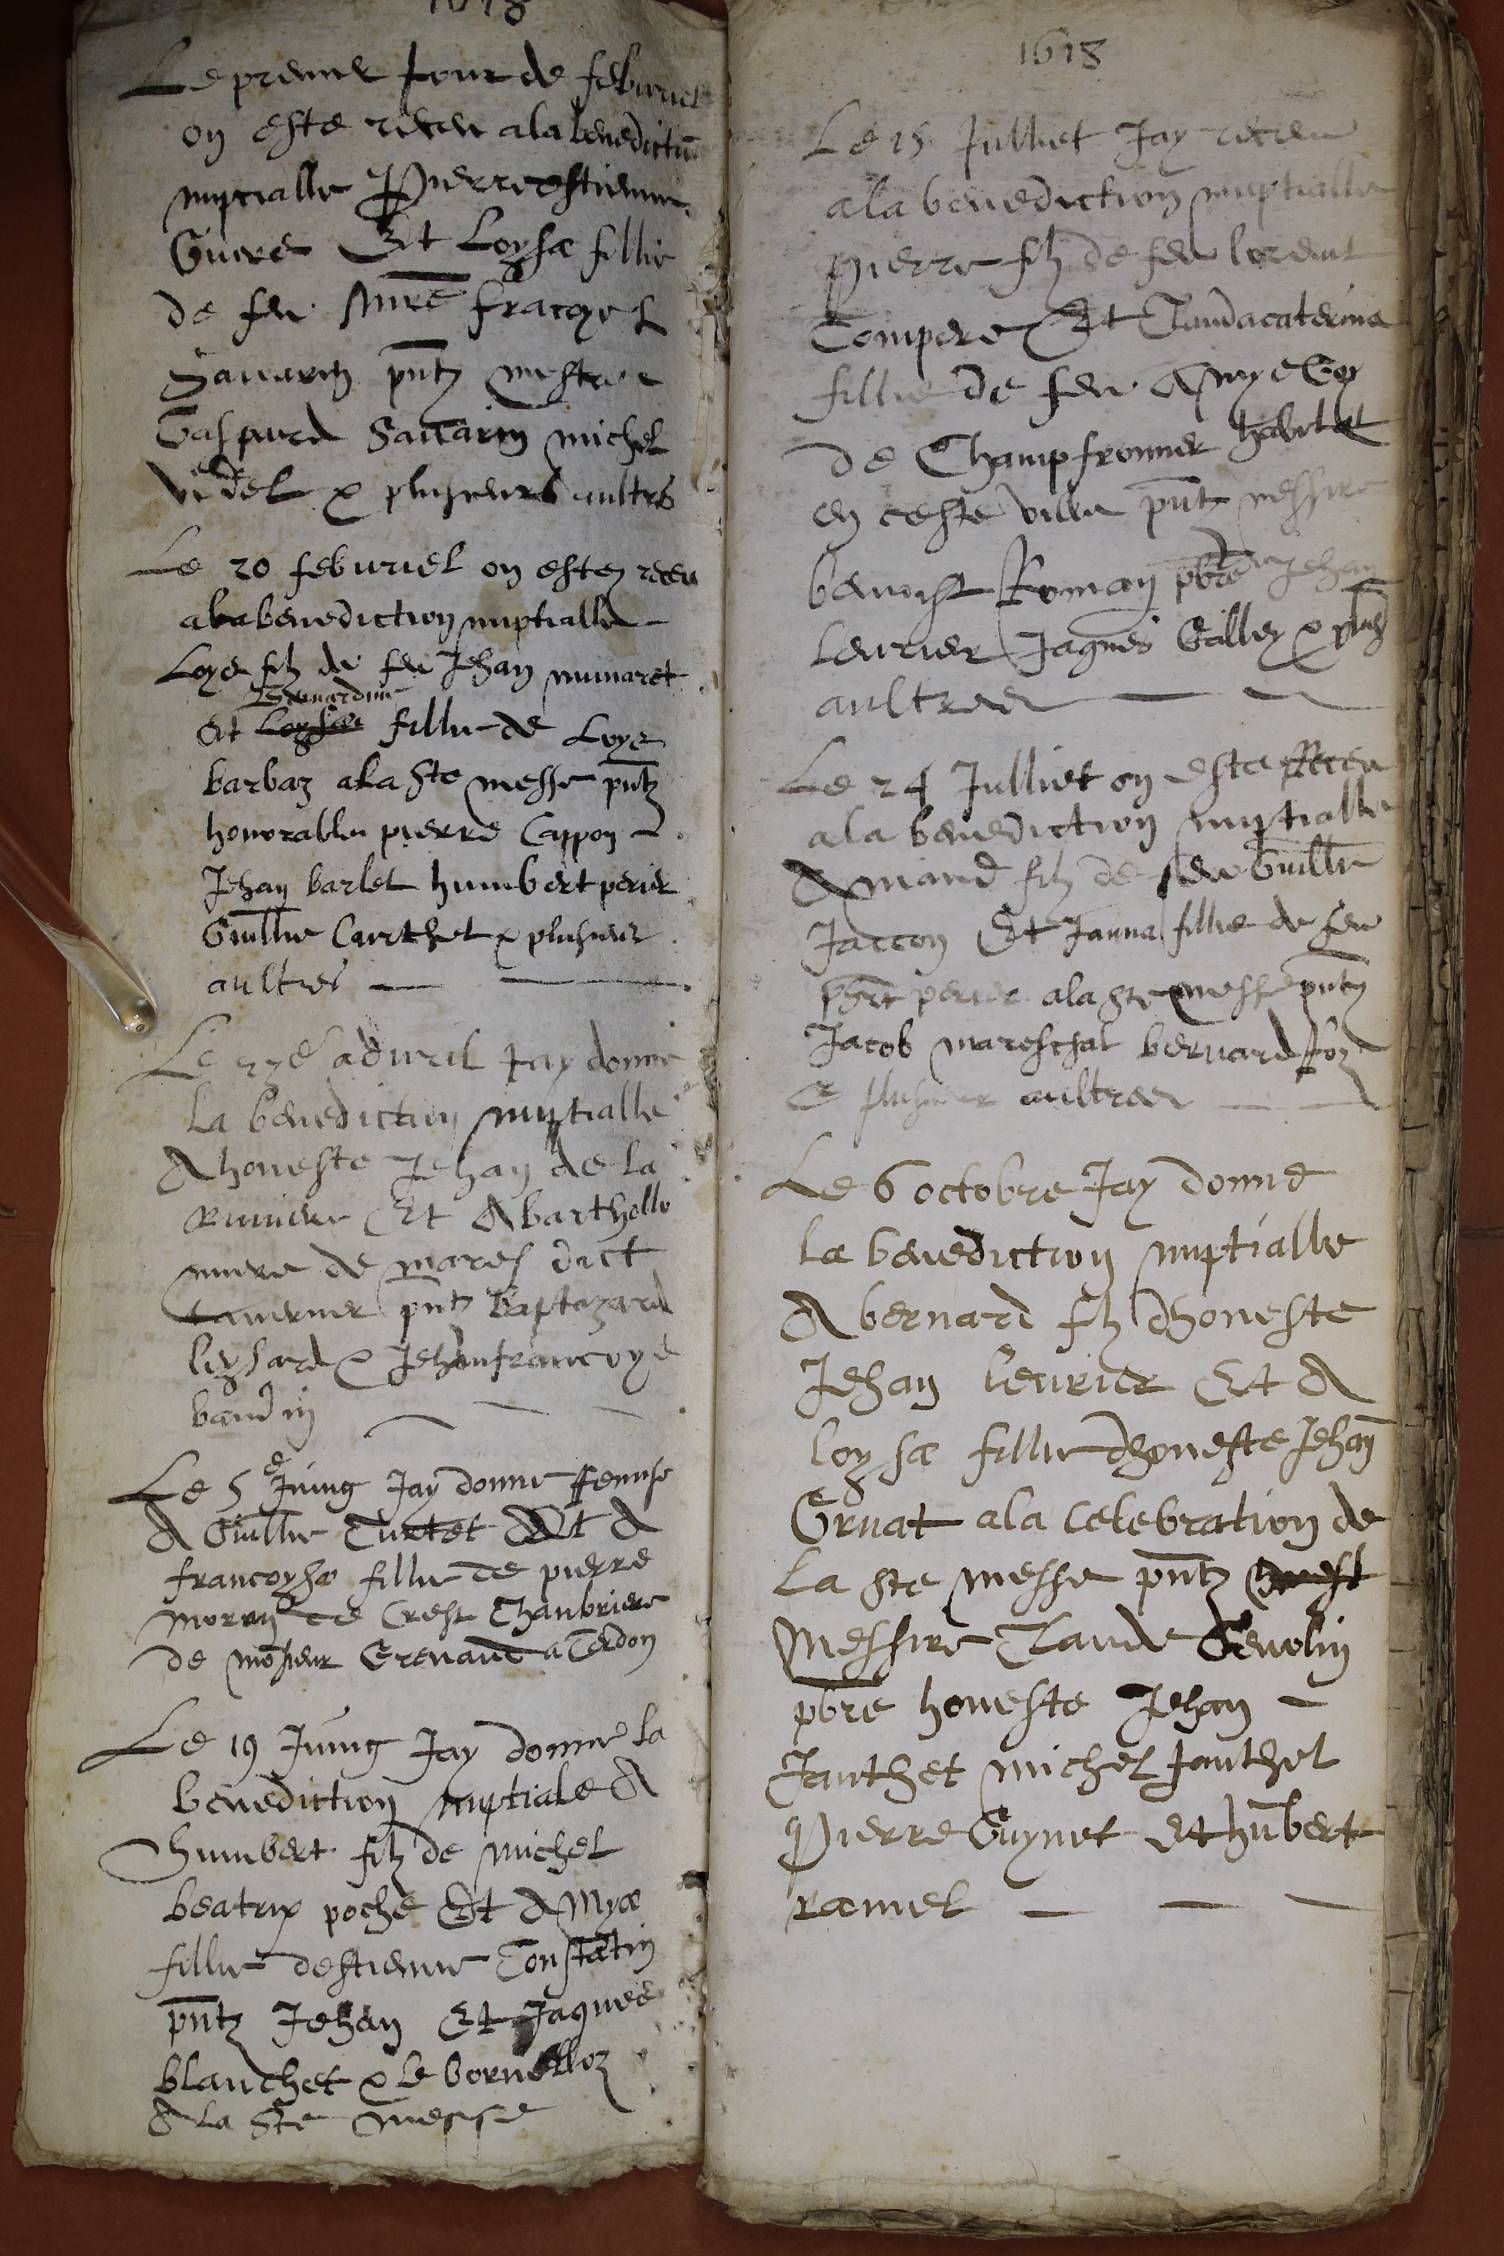 1618
Le premier Jour de feburier
on este receu a la benedictio
nuptialle Pierre estienne
Et Loysa fillie
de feu Mre
Savarin pntz mestre
Gaspard Savarin michel
videl & plusieurs aultres
Le 20 feburier on estez receu
a la benediction nuptialle
Loye filz de feu Jehan
Bernardine
et Loysa fillie de Loye
barbaz a la ste messe pntz
honorables pierre Cappon
Jehan barlet humbert perier
Guillie Carthet & plusieur
aultres
Le advril Jay donne
la benediction nuptialle
A honeste Jehan de la
Et A barthollo
de mares dict
pntz baptazard
lissard & Jehanfrancoye
baudin
Le 5e Juing Jay donne
A Guillie Turtet Et A
francoysa fillie de pierre
moron de Crest Chanbriere
de mosieur Grenaud a Cerdon
Le 19 Juing Jay donne la
benediction nuptiale A
humbert filz de michel
beatrix poche Et Amya
fillie destienne Constatin
pntz Jehan Et Jaques
blanchet & le
A la Ste messe
1618
Le 15 Julliet Jay receu
a la benediction nuptialle
Pierre filz de feu lorent
Compere Et Claudacaterina
fillie de feu Amye Goy
de Champfromier habitat
en ceste ville pntz messire
benoist Roman pbre Jehan
levrier Jaques Galley & plus
aultres
Le 24 Julliet on este Receu
a la benediction nuptialle
Amand filz de feu Guillie
Jaccon Et Janna fillie de feu
perier a la ste messe pntz
Jacob mareschal bernard foz
& plusieur aultres
Le 6 octobre Jay donne
la benediction nuptialle
A bernard filz dhoneste
Jehan levrier Et A
loysa fillie dhoneste Jehan
Gruat a la celebration de
la ste messe pntz
Messire Claude Genolin
pbre honeste Jehan
Janthet michel Janthet
Pierre Guynet et hubert
ramel